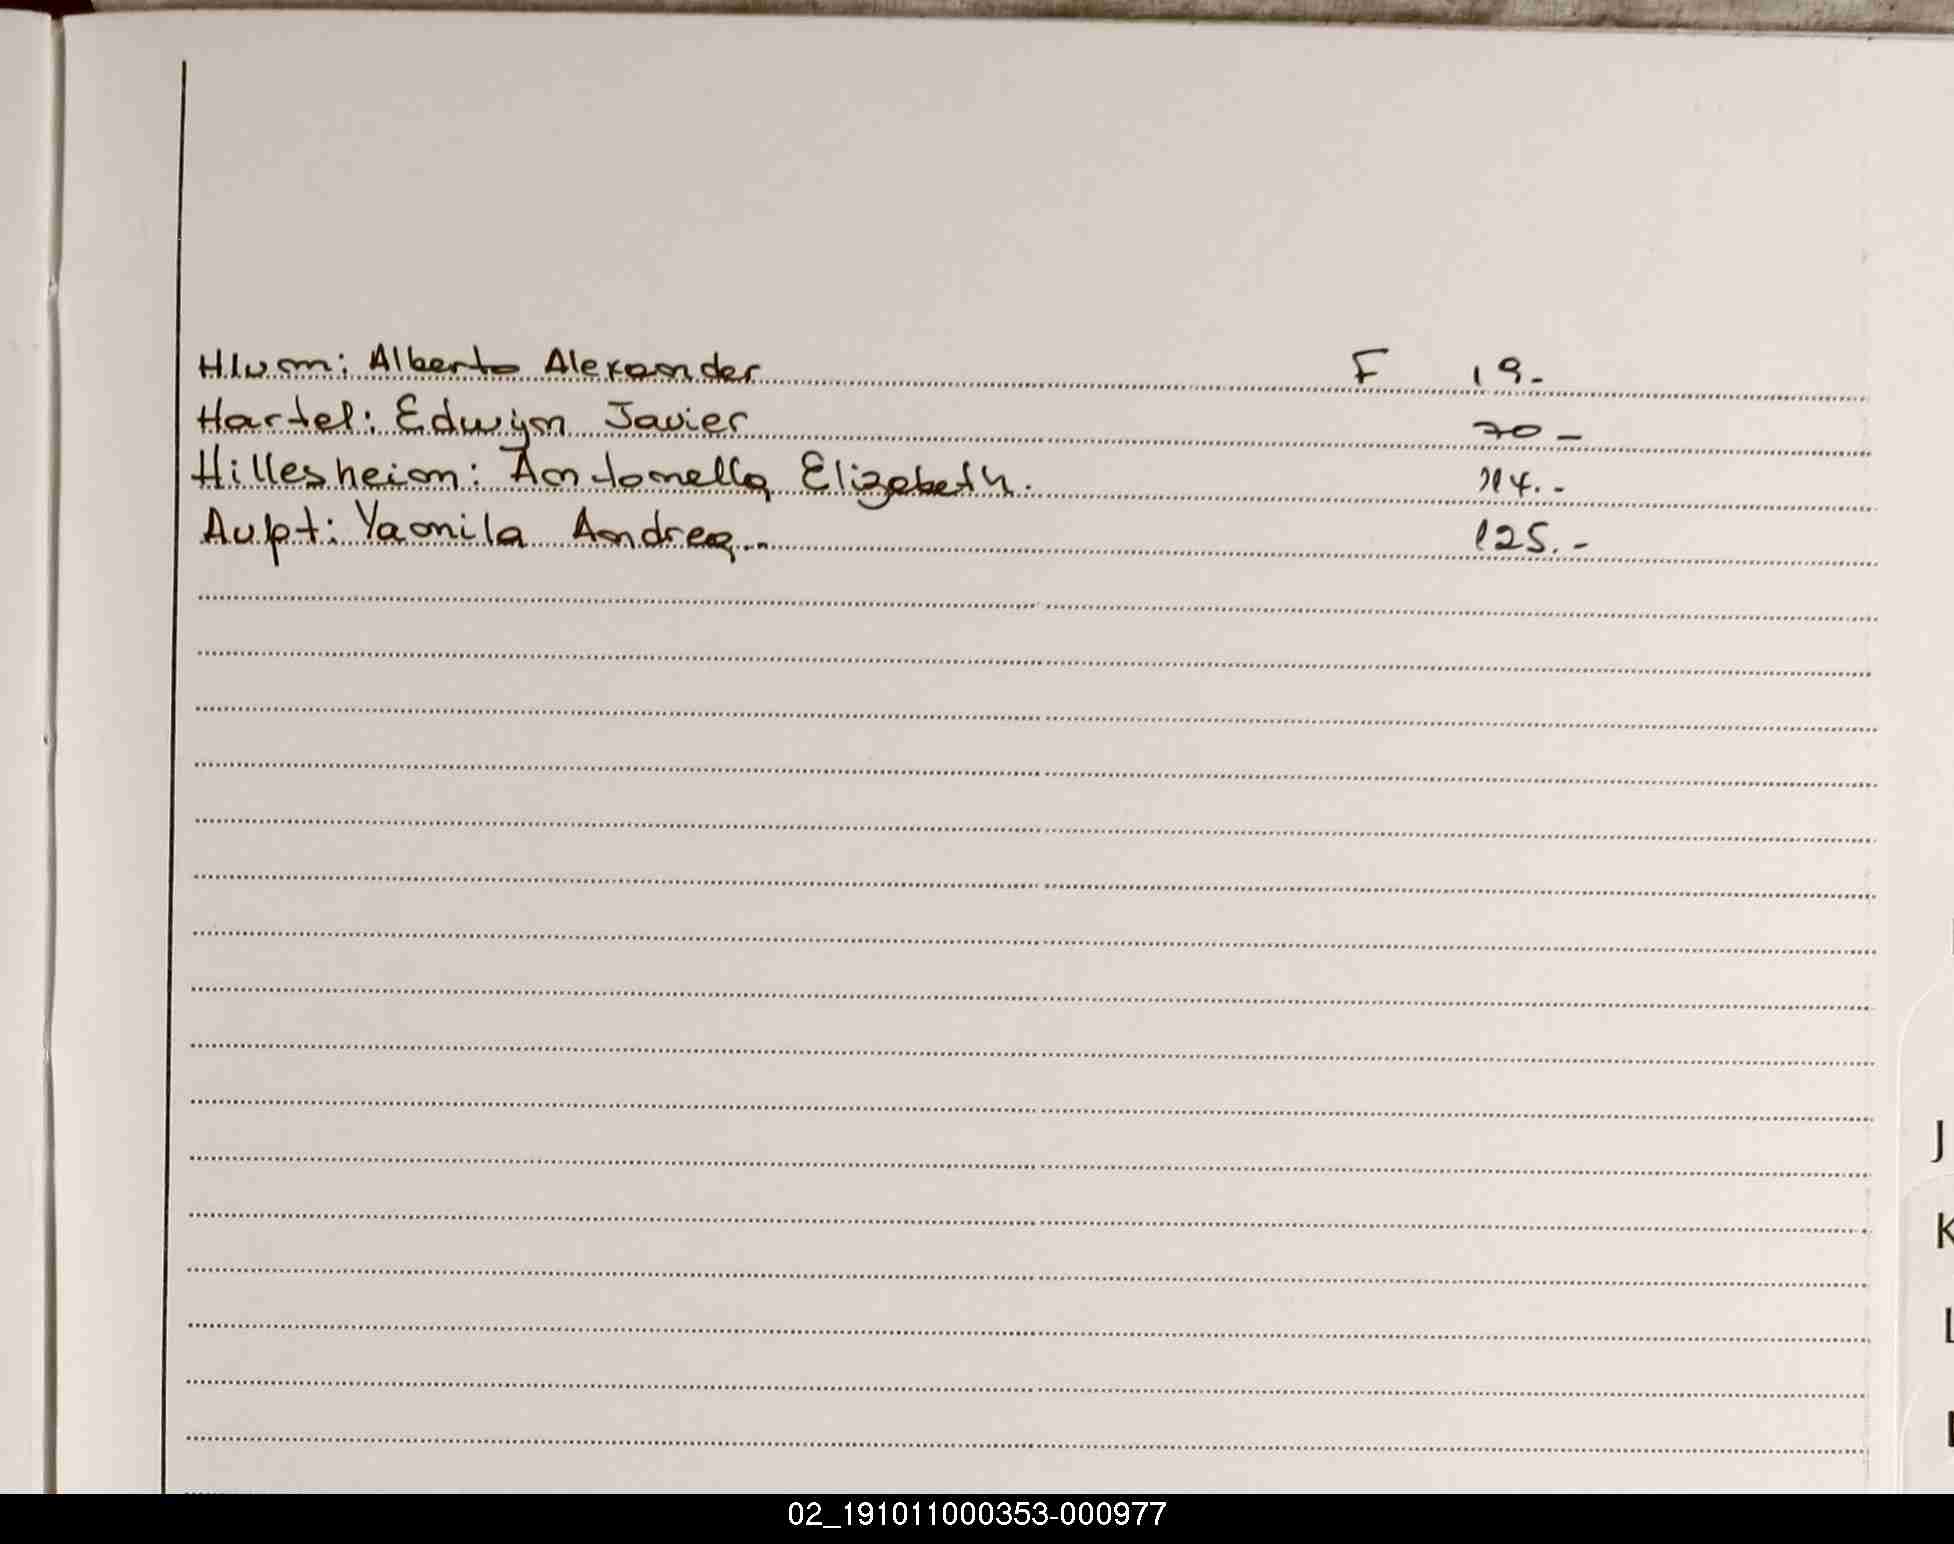 Hlum: Alberto Alexander F 19.-
Hartel: Edwijn Javier 70-
Hillesheim: Antonella Elizabeth. 114.-
Aupt: Yamila Andrea.. 125.-
J
K
L
02_191011000353-000977